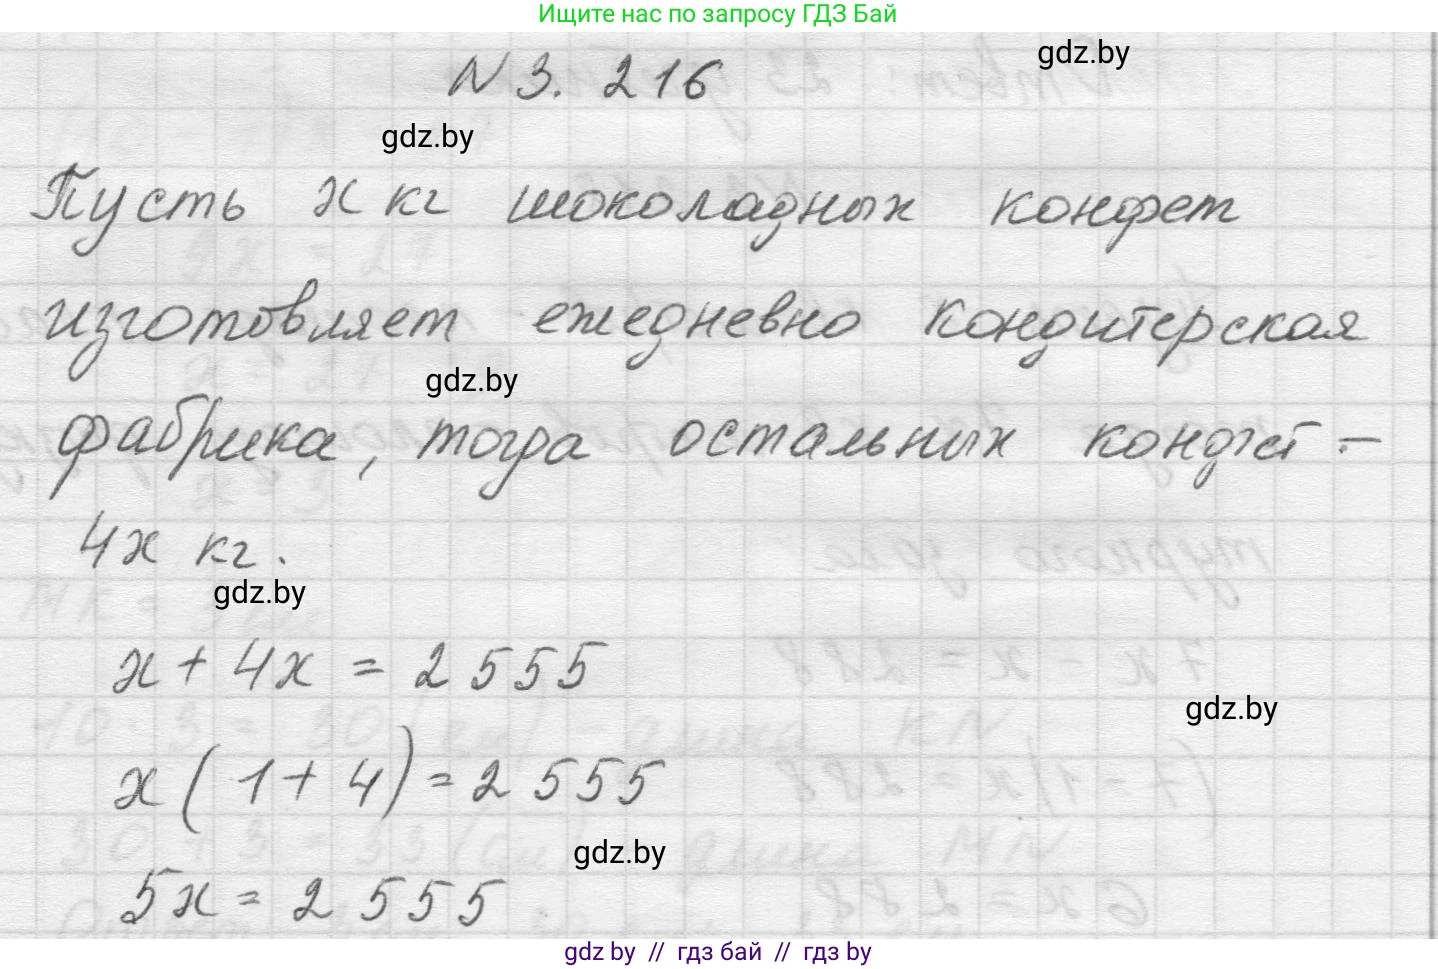 Ищите нас по запросу ГДЗ Бай
gdz.by
N 3. 216
gdz.by
Пусть x кг шоколадных конфет
изготовляет ежедневно кондитерская
gdz.by
фабрика, тогда остальных конфет –
4x кг.
gdz.by
x + 4x = 2555
gdz.by
x(1 + 4) = 2555
gdz.by
5x = 2555
gdz.by // гдз бай // гдз by